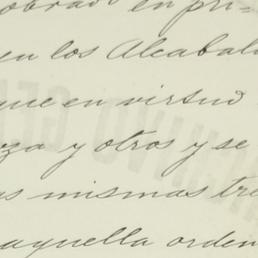 obrado en pri=
en los Alcabal
que en virtud
za y otros y se
as mismas tre
aquella orden